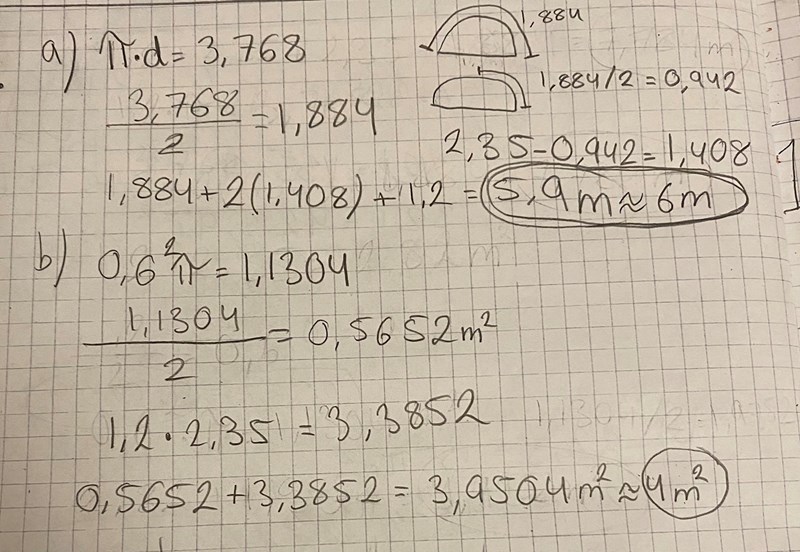 a) π·d = 3,768
3,768
2
= 1,884
1,884
1,884/2 = 0,942
2,35-0,942 = 1,408
1,884 + 2(1,408) + 1,2 = 5,9m ≈ 6m
b) 0,6²π = 1,1304
1,1304
2
= 0,5652m²
1,2 · 2,35 = 3,3852
0,5652 + 3,3852 = 3,9504m² ≈ 4m²